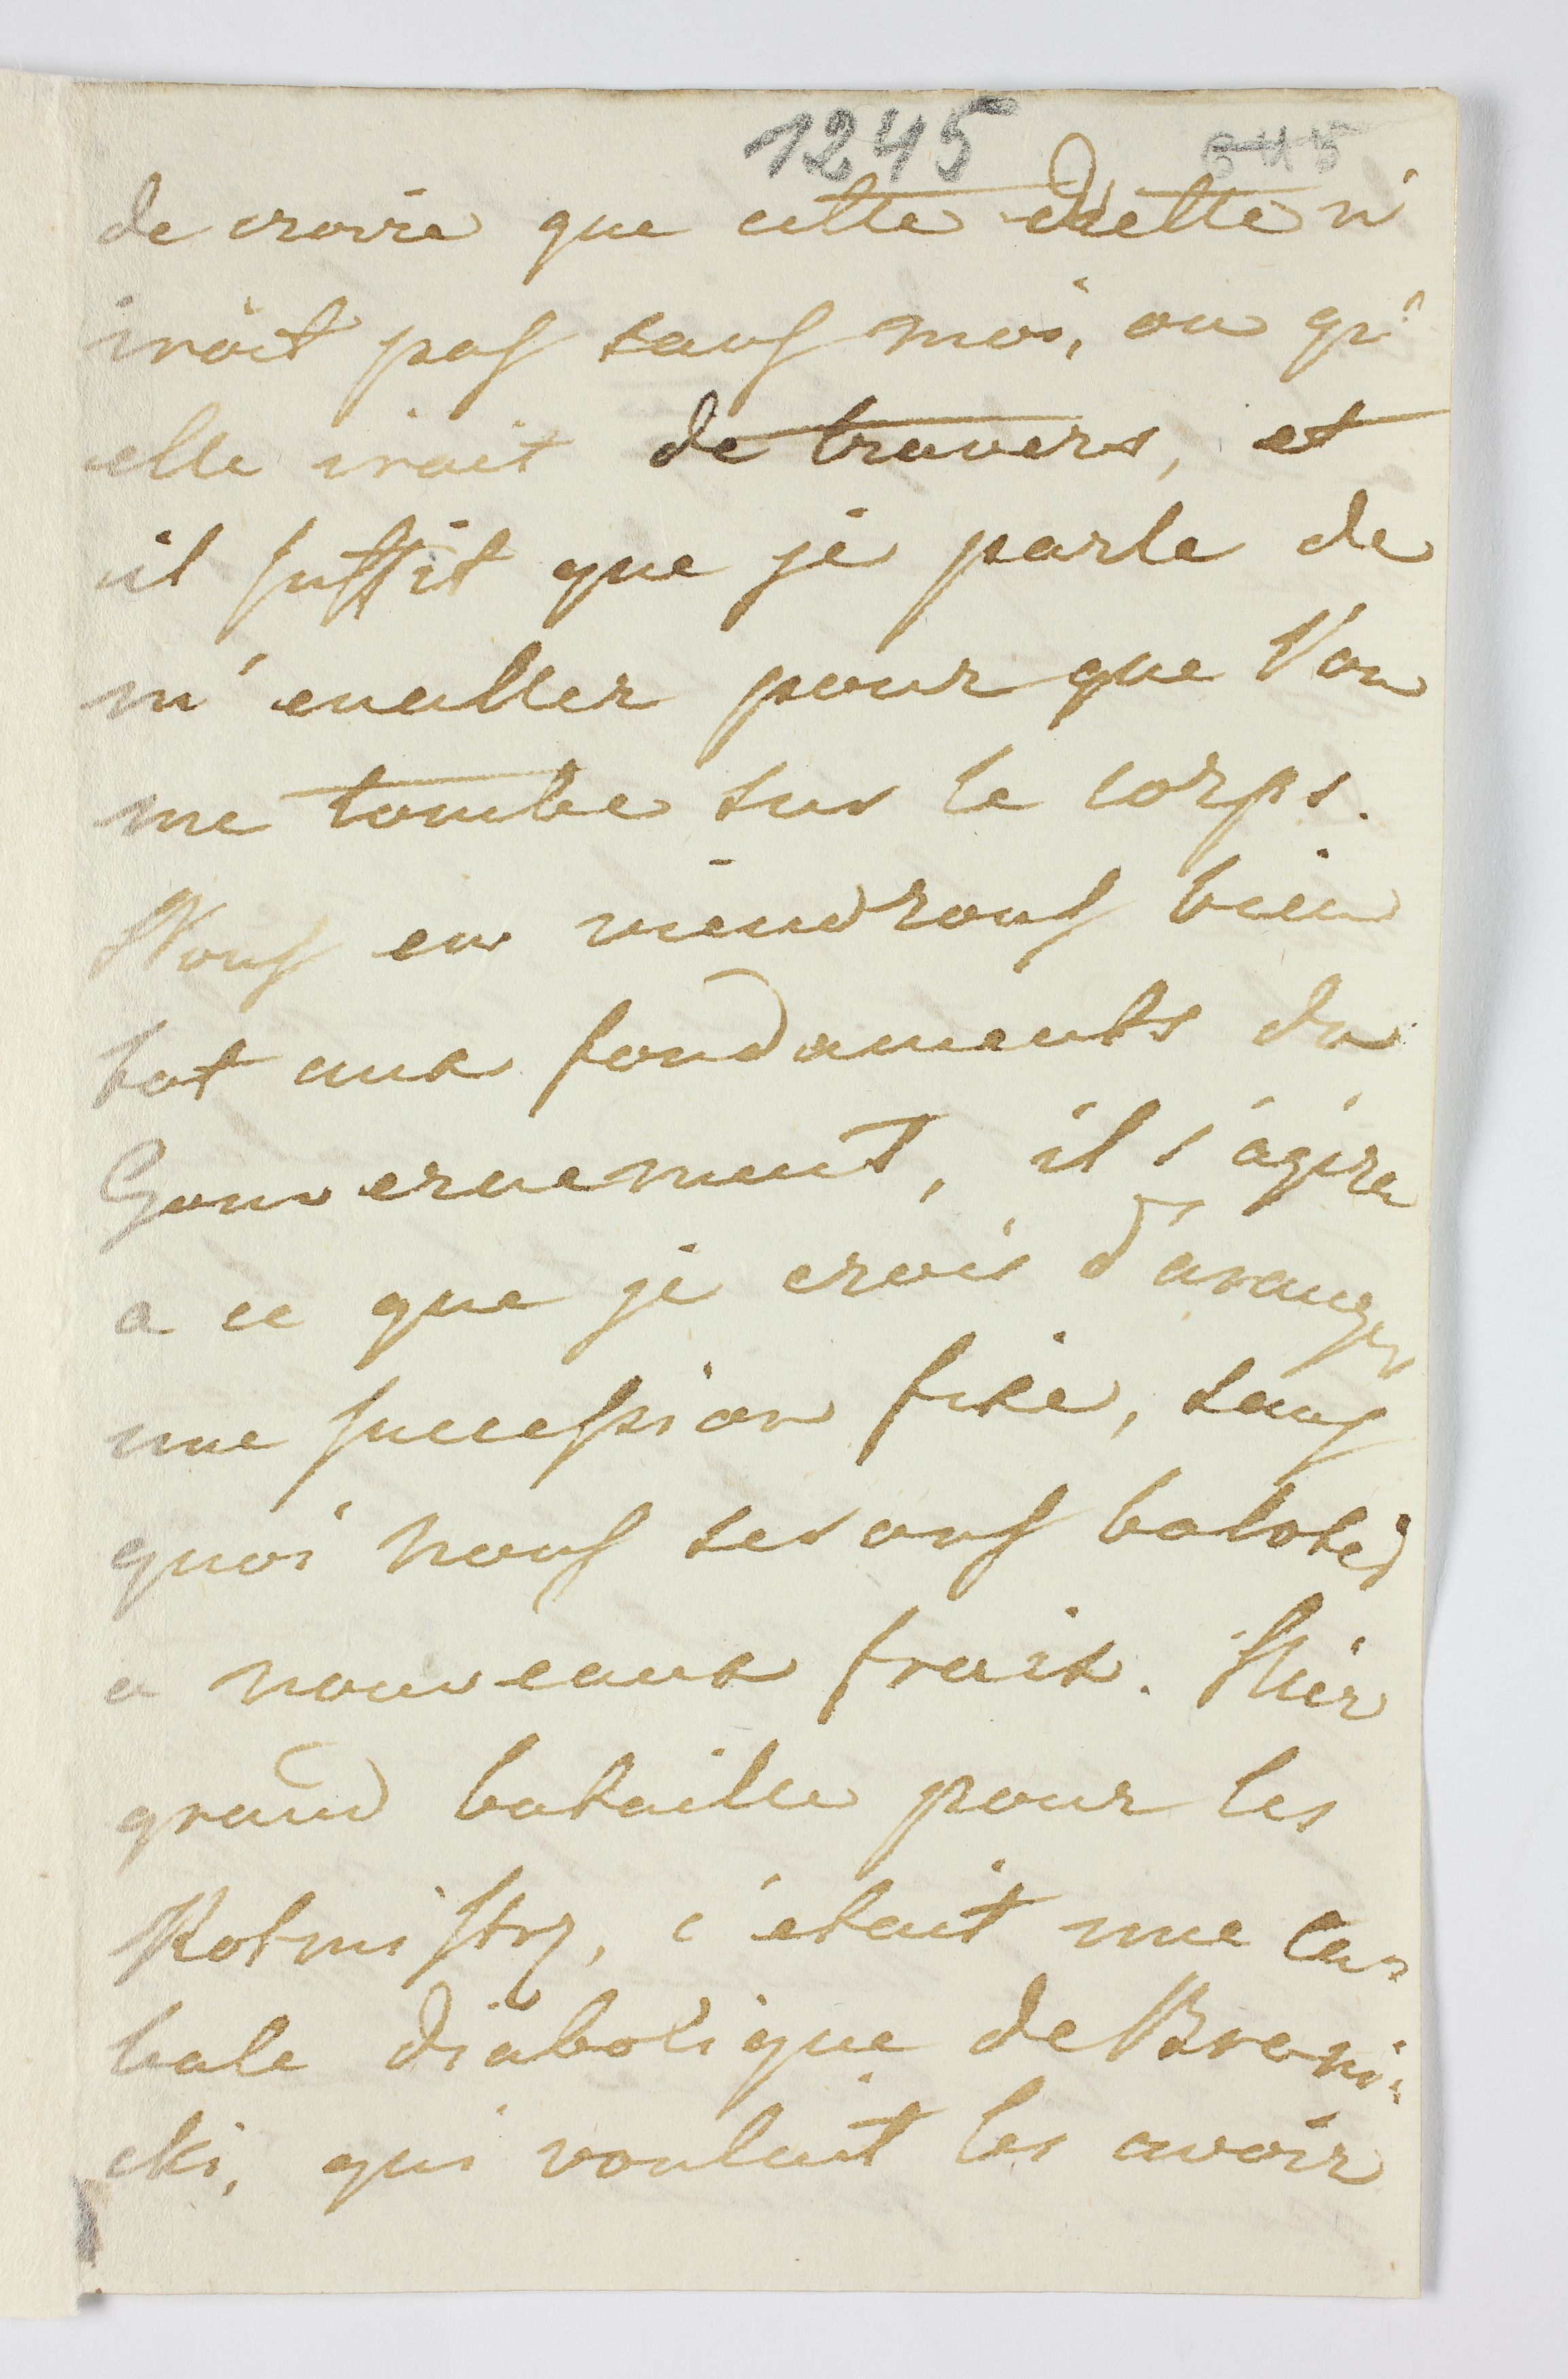 1245 645
de croire que cette diette n'
iroit pas sans moi, ou qu'
elle iroit de travers, et
il suffit que je parle de
m'enaller pour que l'on
me tombe sur le corps.
Nous en viendrons bien
tot aux fondaments du
Gouvernement, il s'agira
a ce que je crois d'aranger
une succession fixe, sans
quoi nous serons balotés
a nouveaux frais. Hier
grand bataille pour les
Rotmistrz, c'etait une ca-
bale diabolique de Brani-
cki, qui voulait les avoir